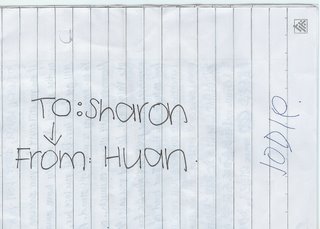 TO: Sharon
From: Huan.